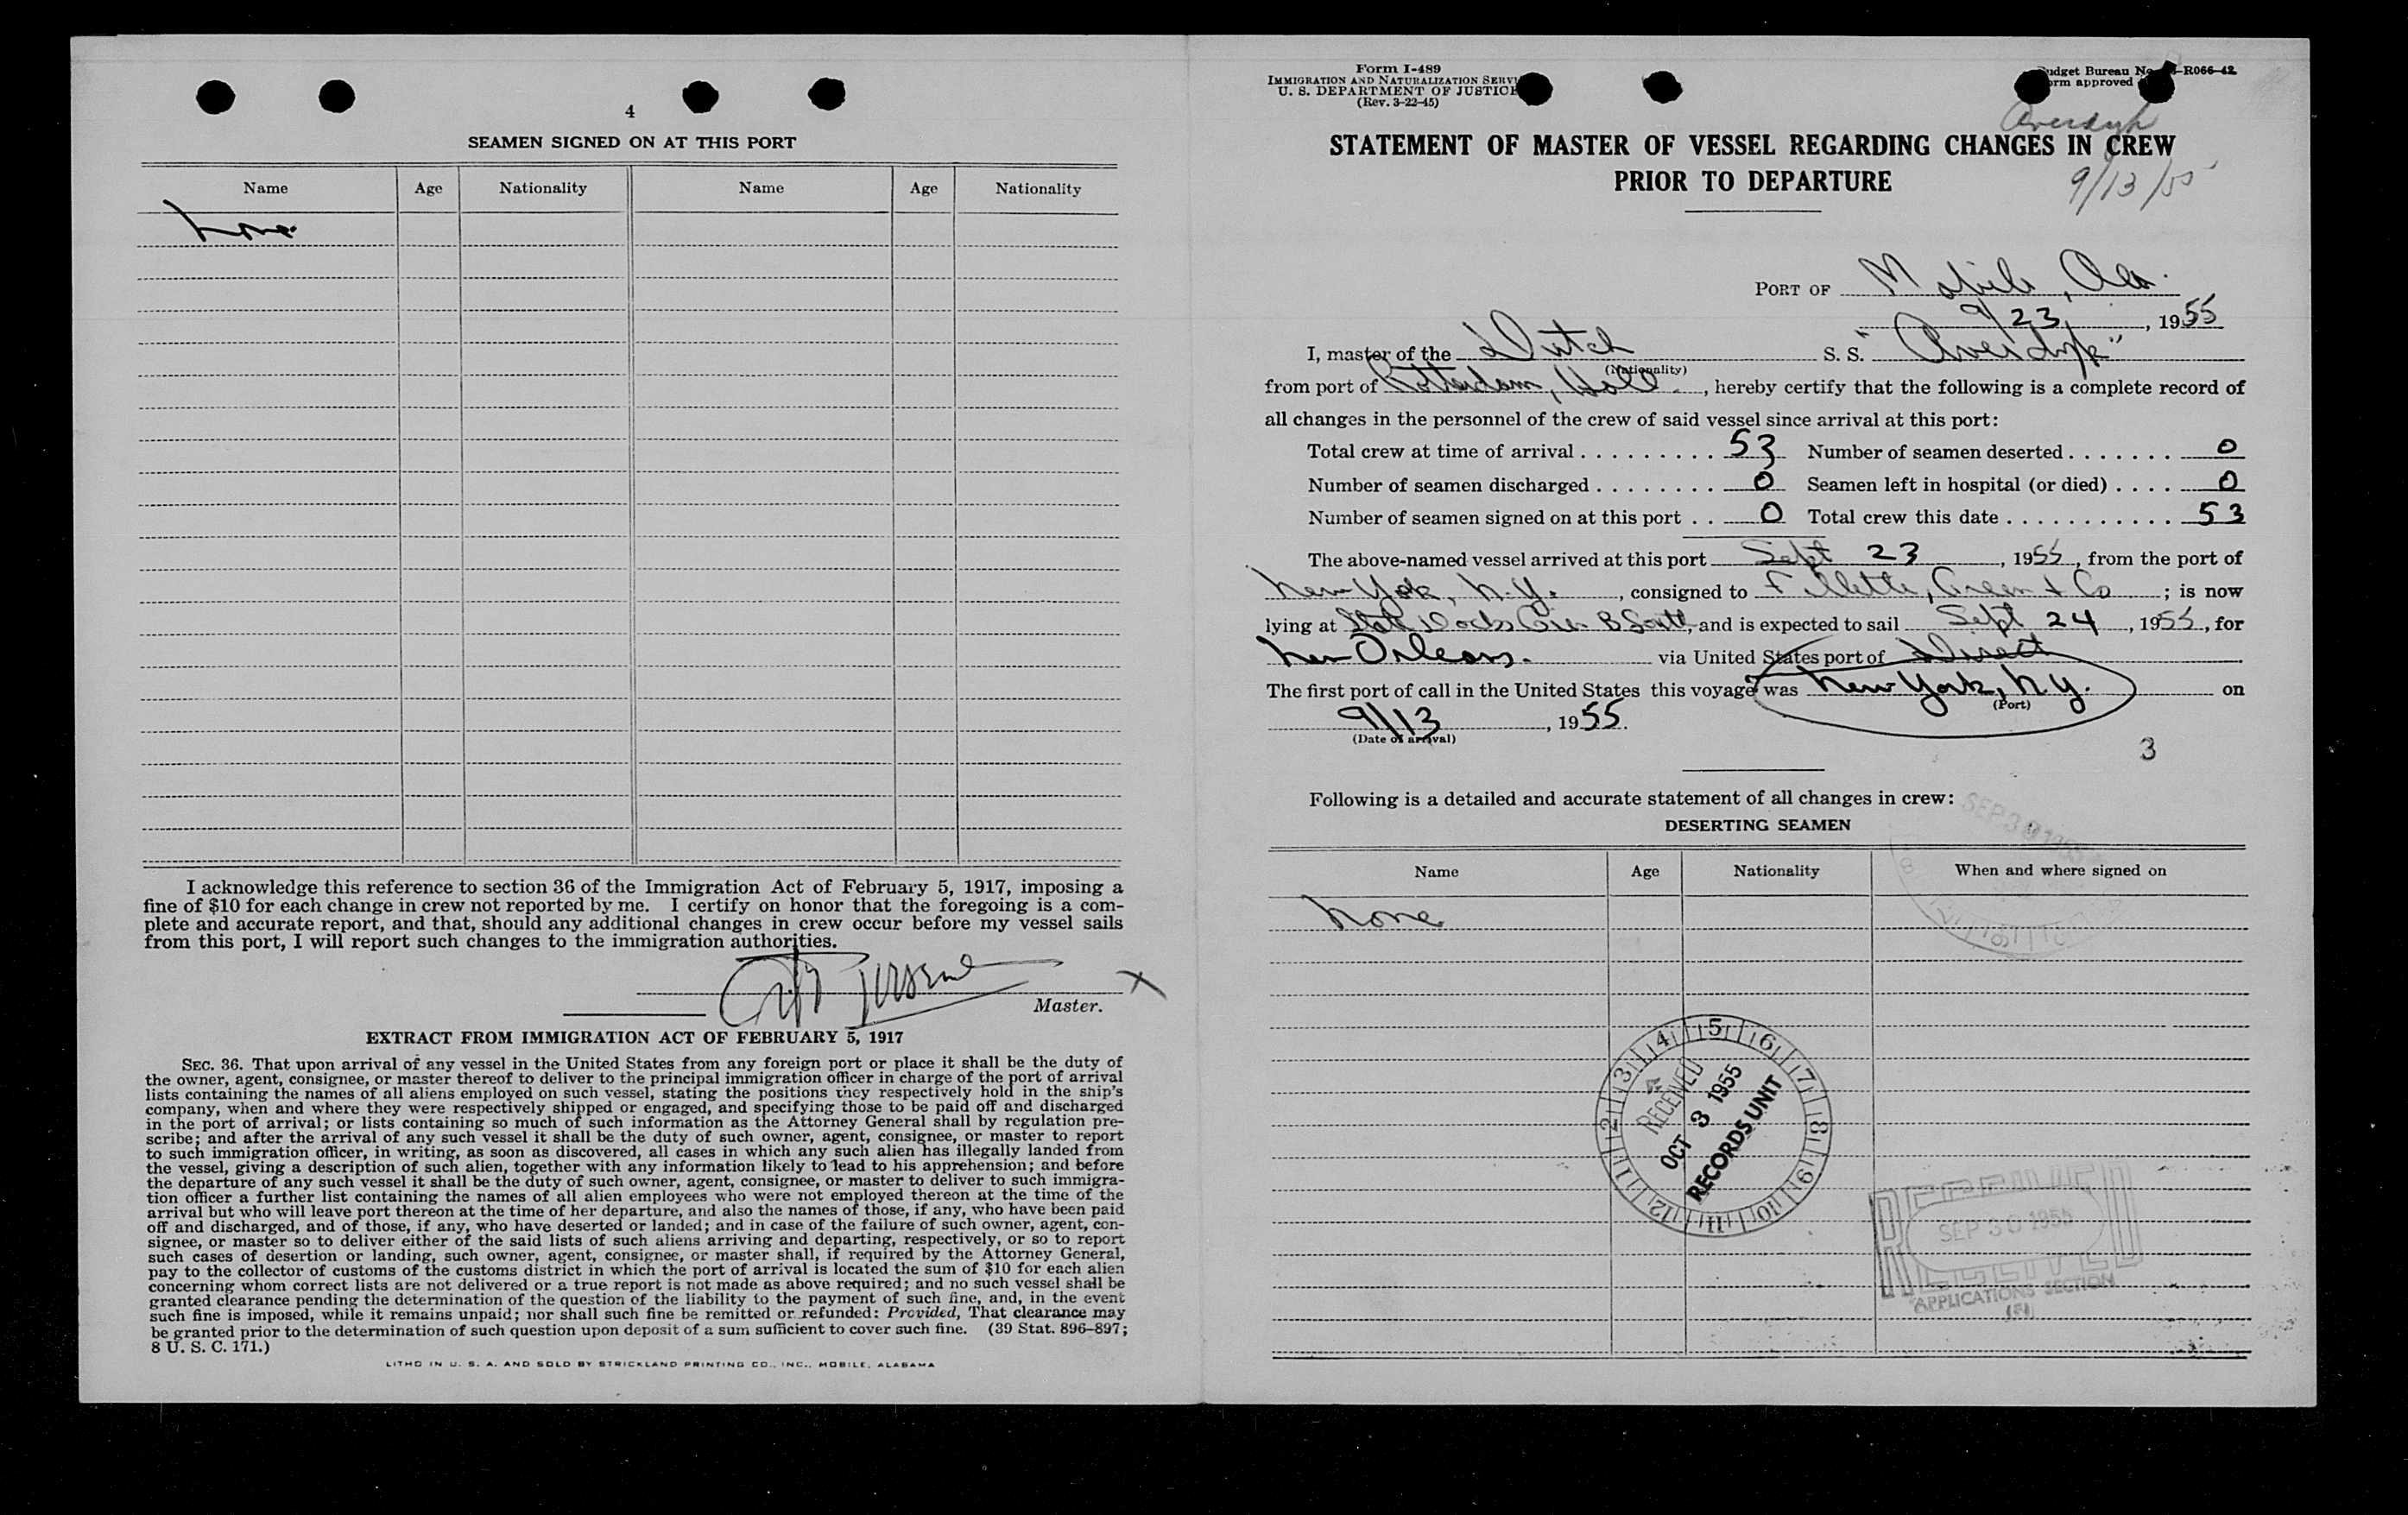 4
SEAMEN SIGNED ON AT THIS PORT
Name Age Nationality Name Age Nationality
None
I acknowledge this reference to section 36 of the Immigration Act of February 5, 1917, imposing a
fine of $10 for each change in crew not reported by me. I certify on honor that the foregoing is a com-
plete and accurate report, and that, should any additional changes in crew occur before my vessel sails
from this port, I will report such changes to the immigration authorities.
Master.
EXTRACT FROM IMMIGRATION ACT OF FEBRUARY 5, 1917
SEC. 36. That upon arrival of any vessel in the United States from any foreign port or place it shall be the duty of
the owner, agent, consignee, or master thereof to deliver to the principal immigration officer in charge of the port of arrival
lists containing the names of all aliens employed on such vessel, stating the positions they respectively hold in the ship's
company, when and where they were respectively shipped or engaged, and specifying those to be paid off and discharged
in the port of arrival; or lists containing so much of such information as the Attorney General shall by regulation pre-
scribe; and after the arrival of any such vessel it shall be the duty of such owner, agent, consignee, or master to report
to such immigration officer, in writing, as soon as discovered, all cases in which any such alien has illegally landed from
the vessel, giving a description of such alien, together with any information likely to lead to his apprehension; and before
the departure of any such vessel it shall be the duty of such owner, agent, consignee, or master to deliver to such immigra-
tion officer a further list containing the names of all alien employees who were not employed thereon at the time of the
arrival but who will leave port thereon at the time of her departure, and also the names of those, if any, who have been paid
off and discharged, and of those, if any, who have deserted or landed; and in case of the failure of such owner, agent, con-
signee, or master so to deliver either of the said lists of such aliens arriving and departing, respectively, or so to report
such cases of desertion or landing, such owner, agent, consignee, or master shall, if required by the Attorney General,
pay to the collector of customs of the customs district in which the port of arrival is located the sum of $10 for each alien
concerning whom correct lists are not delivered or a true report is not made as above required; and no such vessel shall be
granted clearance pending the determination of the question of the liability to the payment of such fine, and, in the event
such fine is imposed, while it remains unpaid; nor shall such fine be remitted or refunded: Provided, That clearance may
be granted prior to the determination of such question upon deposit of a sum sufficient to cover such fine. (39 Stat. 896–897;
8 U. S. C. 171.)
LITHO IN U. S. A. AND SOLD BY STRICKLAND PRINTING CO., INC., MOBILE, ALABAMA
Form I-489
IMMIGRATION AND NATURALIZATION SERVI
U. S. DEPARTMENT OF JUSTICE
(Rev. 3-22-45)
udget Bureau No. -R066-42
orm approved
Averdyk
STATEMENT OF MASTER OF VESSEL REGARDING CHANGES IN CREW
PRIOR TO DEPARTURE
9/13/55
PORT OF Mobile, Ala.
9/23, 1955
I, master of the Dutch S. S. "Averdyk"
(Nationality)
from port of Rotterdam, Holl., hereby certify that the following is a complete record of
all changes in the personnel of the crew of said vessel since arrival at this port:
Total crew at time of arrival 53 Number of seamen deserted 0
Number of seamen discharged 0 Seamen left in hospital (or died) 0
Number of seamen signed on at this port 0 Total crew this date 53
The above-named vessel arrived at this port Sept 23, 1955, from the port of
New York, N.Y., consigned to Fillette, Green & Co; is now
lying at State Docks Pier B South, and is expected to sail Sept 24, 1955, for
New Orleans. via United States port of Direct
The first port of call in the United States this voyage was New York, N.Y. on
(Port)
9/13, 1955.
(Date of arrival)
3
Following is a detailed and accurate statement of all changes in crew:
SEP 30 1955
DESERTING SEAMEN
Name Age Nationality When and where signed on
None
1 2 3 4 5 6 7 8 9 10 11 12
RECEIVED
OCT 3 1955
RECORDS UNIT
RECEIVED
SEP 30 1955
APPLICATIONS SECTION